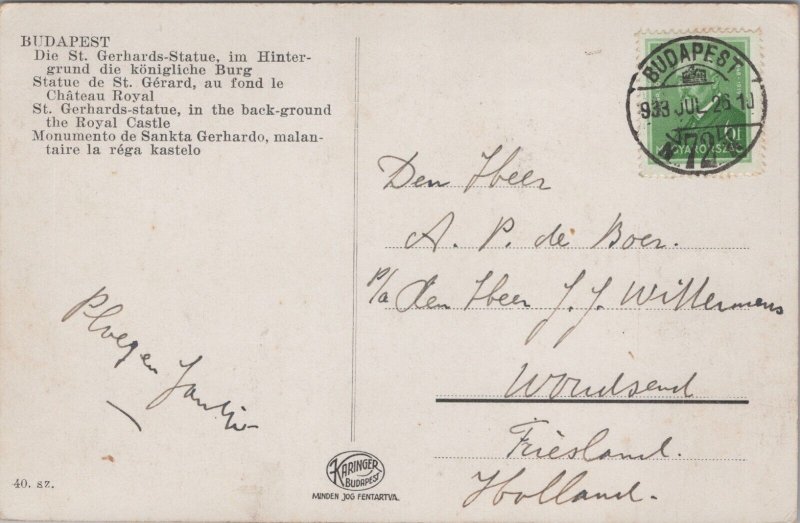 BUDAPEST
Die St. Gerhards-Statue, im Hinter-
grund die königliche Burg
Statue de St. Gérard, au fond le
Château Royal
St. Gerhards-statue, in the back-ground
the Royal Castle
Monumento de Sankta Gerhardo, malan-
taire la réga kastelo
BUDAPEST
933 JUL 26 10
72
MAGYARORSZÁG
Den Heer
A. P. de Boer.
p/a den Heer J. J. Wittermans
Woudsend
Friesland.
Holland.
KARINGER
BUDAPEST
MINDEN JOG FENTARTVA.
40. sz.